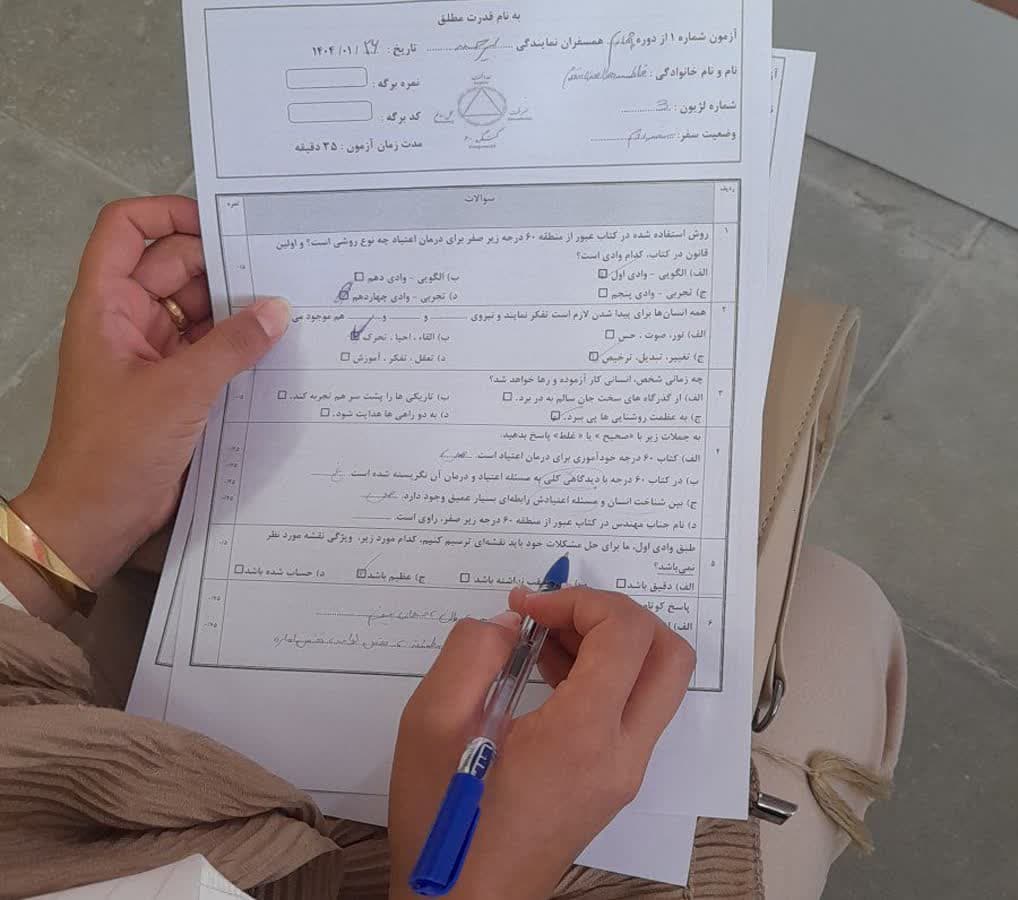 به نام قدرت مطلق
آزمون شماره ۱ از دوره همسفران نمایندگی
تاریخ : ۲۶ / ۰۱/ ۱۴۰۴
نام و نام خانوادگی :
نمره برگه :
شماره لژیون : 3
کد برگه :
وضعیت سفر:
مدت زمان آزمون : ۳۵ دقیقه
کنگره ۶۰
ردیف سوالات نمره
۱ روش استفاده شده در کتاب عبور از منطقه ۶۰ درجه زیر صفر برای درمان اعتیاد چه نوع روشی است؟ و اولین
قانون در کتاب، کدام وادی است؟
الف) الگویی - وادی اول ب) الگویی - وادی دهم
ج) تجربی - وادی پنجم د) تجربی - وادی چهاردهم
۲ همه انسان‌ها برای پیدا شدن لازم است تفکر نمایند و نیروی ......... و ......... و ......... هم موجود می
الف) نور، صوت ، حس ب) القاء ، احیا ، تحرک
ج) تغییر، تبدیل، ترخیص د) تعقل ، تفکر ، آموزش
۳ چه زمانی شخص، انسانی کار آزموده و رها خواهد شد؟
الف) از گذرگاه های سخت جان سالم به در برد. ب) تاریکی ها را پشت سر هم تجربه کند.
ج) به عظمت روشنایی ها پی ببرد. د) به دو راهی ها هدایت شود.
۴ به جملات زیر با «صحیح » یا « غلط» پاسخ بدهید.
الف) کتاب ۶۰ درجه خودآموزی برای درمان اعتیاد است.
ب) در کتاب ۶۰ درجه با دیدگاهی کلی به مسئله اعتیاد و درمان آن نگریسته شده است. غ
ج) بین شناخت انسان و مسئله اعتیادش رابطه‌ای بسیار عمیق وجود دارد.
د) نام جناب مهندس در کتاب عبور از منطقه ۶۰ درجه زیر صفر، راوی است.
۵ طبق وادی اول، ما برای حل مشکلات خود باید نقشه‌ای ترسیم کنیم، کدام مورد زیر، ویژگی نقشه مورد نظر
نمی‌باشد؟
الف) دقیق باشد نداشته باشد ج) عظیم باشد د) حساب شده باشد
۶ پاسخ کوتاه
الف)